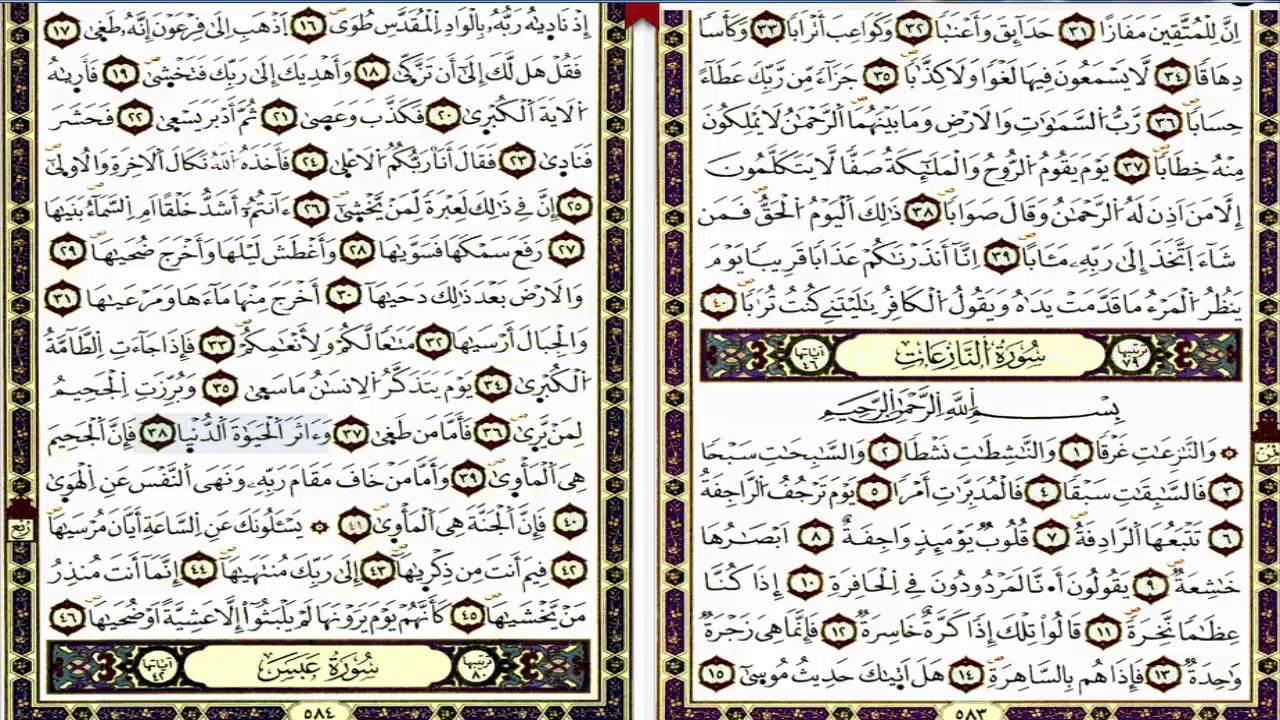 اِنَّ لِلْمُتَّقِينَ مَفَازًا ٣١ حَدَآئِقَ وَأَعْنَٰبًا ٣٢ وَكَوَاعِبَ أَتْرَابًا ٣٣ وَكَأْسًا
دِهَاقًا ٣٤ لَّا يَسْمَعُونَ فِيهَا لَغْوًا وَلَا كِذَّٰبًا ٣٥ جَزَآءً مِّن رَّبِّكَ عَطَآءً
حِسَابًا ٣٦ رَّبُّ السَّمَٰوَٰتِ وَالَارْضِ وَمَا بَيْنَهُمَا الرَّحْمَٰنُ لَا يَمْلِكُونَ
مِنْهُ خِطَابًا ٣٧ يَوْمَ يَقُومُ الرُّوحُ وَالْمَلَٰٓئِكَةُ صَفًّا لَّا يَتَكَلَّمُونَ
إِلَّا مَنَ اَذِنَ لَهُ الرَّحْمَٰنُ وَقَالَ صَوَابًا ٣٨ ذَٰلِكَ الْيَوْمُ الْحَقُّ فَمَن
شَآءَ اَتَّخَذَ إِلَىٰ رَبِّهِۦ مَـَٔابًا ٣٩ اِنَّآ أَنذَرْنَٰكُمْ عَذَابًا قَرِيبًا يَوْمَ
يَنظُرُ الْمَرْءُ مَا قَدَّمَتْ يَدَٰهُ وَيَقُولُ الْكَافِرُ يَٰلَيْتَنِے كُنتُ تُرَٰبًا ٤٠
ترتيبها ٧٩ سُورَةُ النَّازِعَاتِ آياتها ٤٦
بِسْمِ اللَّهِ الرَّحْمَٰنِ الرَّحِيمِ
۞ وَالنَّٰزِعَٰتِ غَرْقًا ١ وَالنَّٰشِطَٰتِ نَشْطًا ٢ وَالسَّٰبِحَٰتِ سَبْحًا
٣ فَالسَّٰبِقَٰتِ سَبْقًا ٤ فَالْمُدَبِّرَٰتِ أَمْرًا ٥ يَوْمَ تَرْجُفُ الرَّاجِفَةُ
٦ تَتْبَعُهَا الرَّادِفَةُ ٧ قُلُوبٌ يَوْمَئِذٍ وَاجِفَةٌ ٨ اَبْصَٰرُهَا
خَٰشِعَةٌ ٩ يَقُولُونَ أَ۟نَّا لَمَرْدُودُونَ فِي الْحَافِرَةِ ١٠ إِذَا كُنَّا
عِظَٰمًا نَّخِرَةً ١١ قَالُواْ تِلْكَ إِذًا كَرَّةٌ خَاسِرَةٌ ١٢ فَإِنَّمَا هِيَ زَجْرَةٌ
وَٰحِدَةٌ ١٣ فَإِذَا هُم بِالسَّاهِرَةِ ١٤ هَلَ اَت۪يٰكَ حَدِيثُ مُوس۪يٰٓ ١٥
٥٨٣
إِذْ نَاد۪يٰهُ رَبُّهُۥ بِالْوَادِ الْمُقَدَّسِ طُوَى ١٦ اَذْهَبِ اِلَىٰ فِرْعَوْنَ إِنَّهُۥ طَغ۪يٰ ١٧
فَقُلْ هَل لَّكَ إِلَىٰٓ أَن تَزَّكّ۪يٰ ١٨ وَأَهْدِيَكَ إِلَىٰ رَبِّكَ فَتَخْش۪يٰ ١٩ فَأَر۪يٰهُ
الَايَةَ الْكُبْر۪يٰ ٢٠ فَكَذَّبَ وَعَص۪يٰ ٢١ ثُمَّ أَدْبَرَ يَسْع۪يٰ ٢٢ فَحَشَرَ
فَنَاد۪يٰ ٢٣ فَقَالَ أَنَا رَبُّكُمُ الَاعْل۪يٰ ٢٤ فَأَخَذَهُ اللَّهُ نَكَالَ الَاخِرَةِ وَالُاول۪يٰٓ
٢٥ إِنَّ فِي ذَٰلِكَ لَعِبْرَةً لِّمَنْ يَّخْش۪يٰٓ ٢٦ ءَآنتُمُۥٓ أَشَدُّ خَلْقًا اَمِ السَّمَآءُ بَن۪يٰهَا
٢٧ رَفَعَ سَمْكَهَا فَسَوّ۪يٰهَا ٢٨ وَأَغْطَشَ لَيْلَهَا وَأَخْرَجَ ضُح۪يٰهَا ٢٩
وَالَارْضَ بَعْدَ ذَٰلِكَ دَح۪يٰهَآ ٣٠ أَخْرَجَ مِنْهَا مَآءَهَا وَمَرْع۪يٰهَا ٣١
وَالْجِبَالَ أَرْس۪يٰهَا ٣٢ مَتَٰعًا لَّكُمْ وَلِأَنْعَٰمِكُمْ ٣٣ فَإِذَا جَآءَتِ الطَّآمَّةُ
الْكُبْر۪يٰ ٣٤ يَوْمَ يَتَذَكَّرُ الِانسَٰنُ مَا سَع۪يٰ ٣٥ وَبُرِّزَتِ الْجَحِيمُ
لِمَنْ يَّر۪يٰ ٣٦ فَأَمَّا مَن طَغ۪يٰ ٣٧ وَءَاثَرَ الْحَيَوٰةَ الدُّنْي۪ا ٣٨ فَإِنَّ الْجَحِيمَ
هِيَ الْمَأْو۪يٰ ٣٩ وَأَمَّا مَنْ خَافَ مَقَامَ رَبِّهِۦ وَنَهَى النَّفْسَ عَنِ الْهَو۪يٰ
٤٠ فَإِنَّ الْجَنَّةَ هِيَ الْمَأْو۪يٰ ٤١ ۞ يَسْـَٔلُونَكَ عَنِ السَّاعَةِ أَيَّانَ مُرْس۪يٰهَا
٤٢ فِيمَ أَنتَ مِن ذِكْر۪يٰهَآ ٤٣ إِلَىٰ رَبِّكَ مُنتَه۪يٰهَآ ٤٤ إِنَّمَآ أَنتَ مُنذِرُ
مَنْ يَّخْش۪يٰهَا ٤٥ كَأَنَّهُمْ يَوْمَ يَرَوْنَهَا لَمْ يَلْبَثُوٓاْ إِلَّا عَشِيَّةً اَوْ ضُح۪يٰهَا ٤٦
ترتيبها ٨٠ سُورَةُ عَبَسَ آياتها ٤٢
٥٨٤
ربع